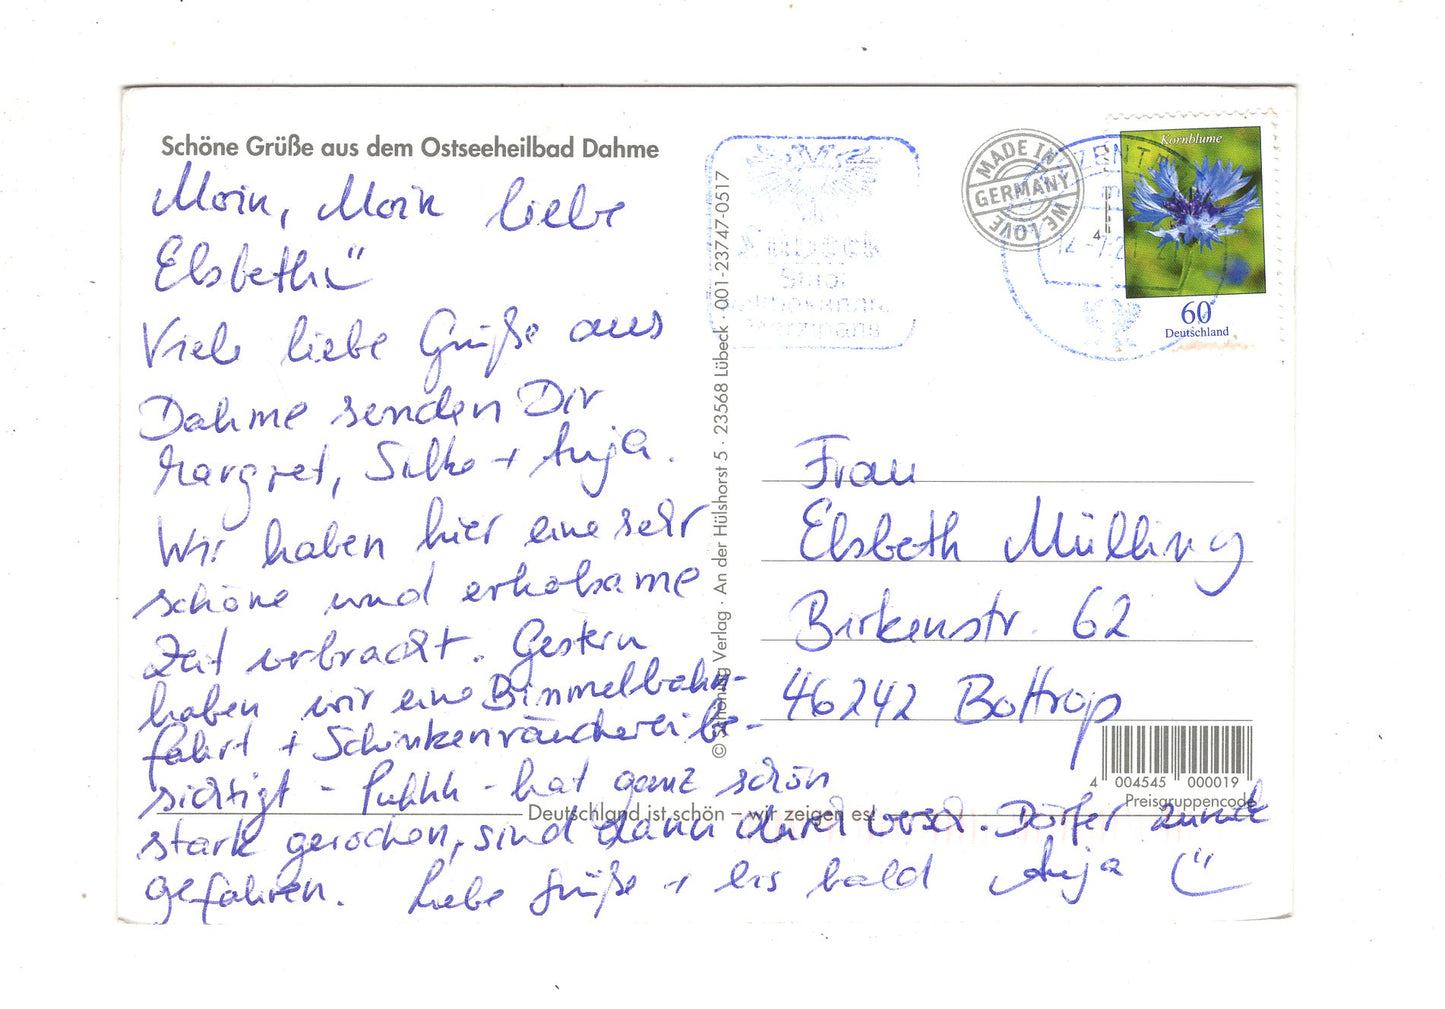 Schöne Grüße aus dem Ostseeheilbad Dahme
Moin, Moin liebe
Elsbeth
Viele liebe Grüße aus
Dahme senden Dir
Margret, Silke + Anja.
Wir haben hier eine sehr
schöne und erholsame
Zeit verbracht. Gestern
haben wir eine Bimmelbahn-
fahrt + Schinkenräucherei be-
sichtigt - Puhhh - hat ganz schön
stark gerochen, sind dann durch versch. Dörfer zurück
gefahren. Liebe Grüße + bis bald Anja
Deutschland ist schön – wir zeigen es!
© Schöning Verlag · An der Hülshorst 5 · 23568 Lübeck · 001-23747-0517
Lübeck
MADE IN
GERMANY
WE LOVE
Kornblume
60
Deutschland
Frau
Elsbeth Mülling
Birkenstr. 62
46242 Bottrop
4 004545 000019
Preisgruppencode